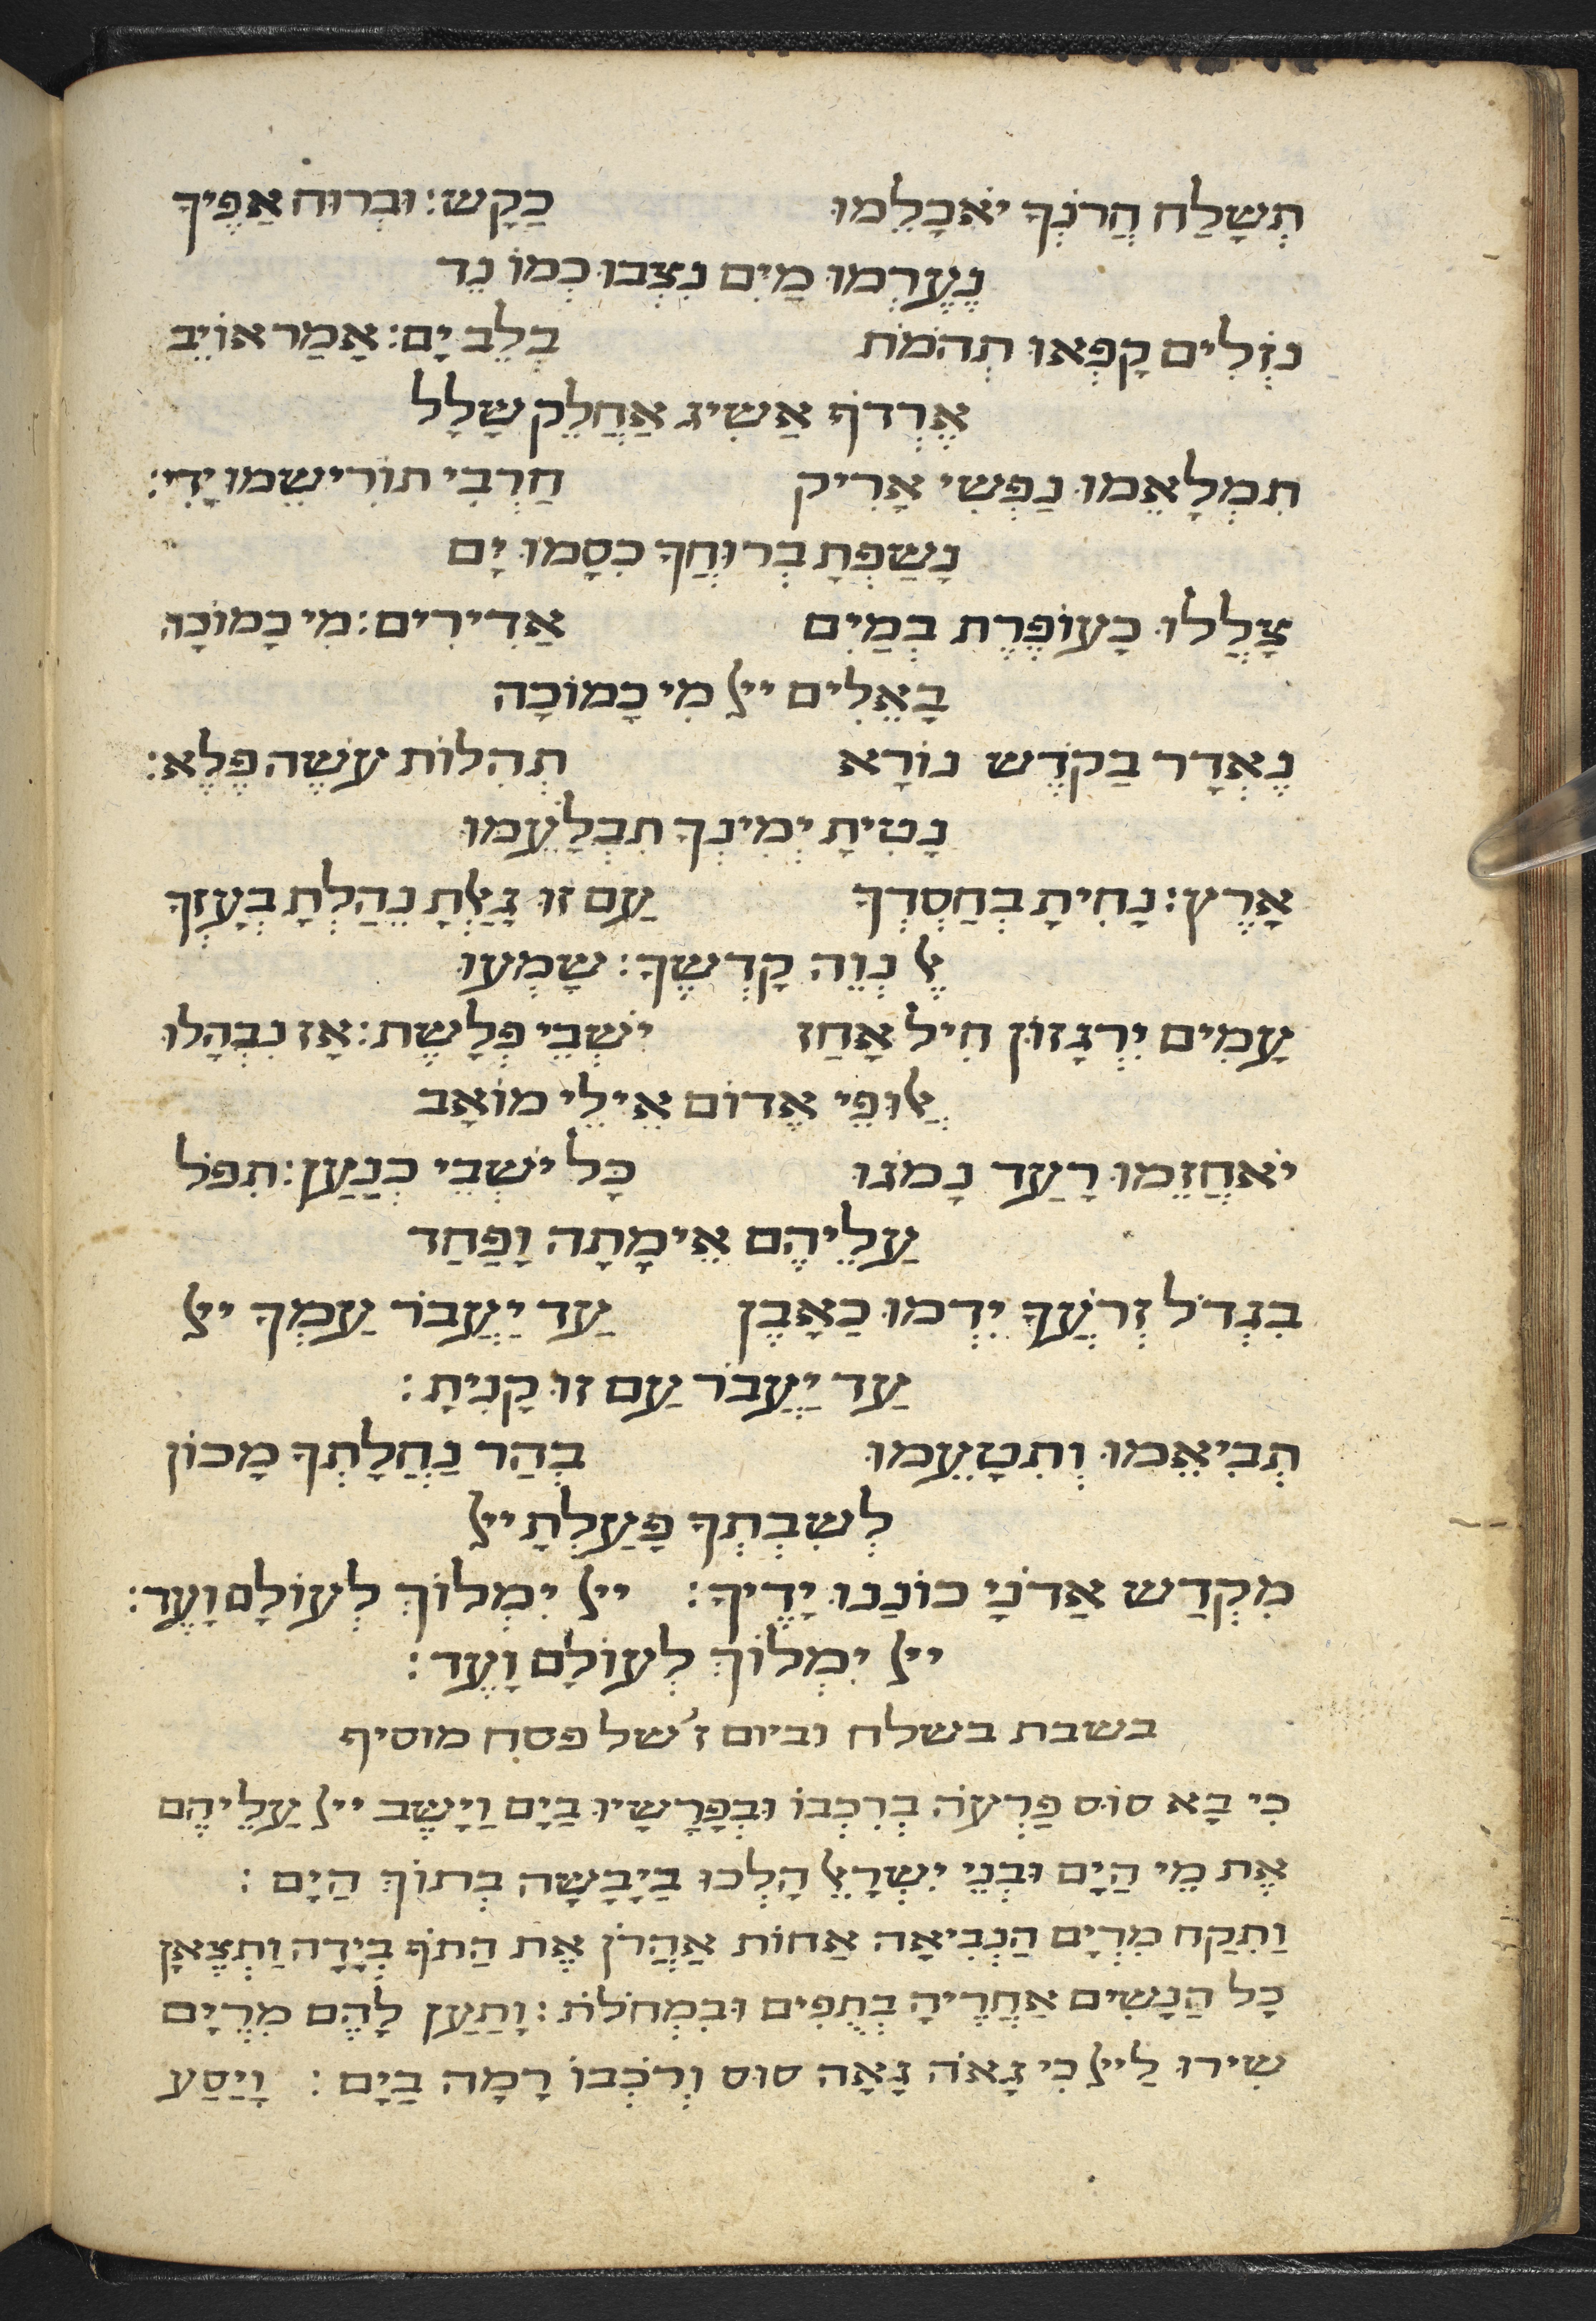 תְשַלַח חֲרֹנְךָ יֹאכְלֵמוּ כַקָש: וּבְרוּח אַפֶיךָ
נֶעֶרְמוּ מַיִם נִצְבוּ כְמוֹ נֵד
נֹזְלִים קָפְאוּ תְהֹמֹת בְלֵב יָם: אָמַר אוֹיֵב
אֶרְדֹף אַשִיג אַחֲלֵק שָלָל
תִמְלָאֵמוֹ נַפְשִי אָרִיק חַרְבִי תוֹרִישֵמוֹ יָדִי:
נָשַפְתָ בְרוּחֲךָ כִסָמוֹ יָם
צָלֲלוּ כָעוֹפֶרֶת בְמַיִם אַדִירִים: מִי כָמוֹכָה
בָאֵלִים ייי מִי כָמוֹכָה
נֶאְדָר בַקֹדֶש נוֹרָא תְהִלוֹת עֹשֶה פֶלֶא:
נָטִיתָ יְמִינְךָ תִבְלָעֵמוֹ
אָרֶץ: נָחִיתָ בְחַסְדְךָ עַם זוּ גָאַלְתָ נֵהַלְתָ בְעָזְךָ
אֶל נְוֵה קָדְשֶךָ: שָמְעוּ
עָמִים יִרְגָזוּן חִיל אָחַז יֹשְבֵי פְלָשֶת: אָז נִבְהָלוּ
אַלוּפֵי אֱדוֹם אֵילֵי מוֹאָב
יֹאחֲזֵמוֹ רָעַד נָמֹגוּ כָל יֹשְבֵי כְנָעַן: תִפֹל
עַלֵיהֶם אֵימָתָה וָפַחַד
בִגְדֹל זְרֹעֲךָ יִדְמוּ כַאָבֶן עַד יַעֲבֹר עַמְךָ ייי
עַד יַעֲבֹר עַם זוּ קָנִיתָ:
תְבִיאֵמוֹ וְתִטָעֵמוֹ בְהַר נַחֲלָתְךָ מָכוֹן
לְשִבְתְךָ פָעַלְתָ ייי
מִקְדַש אַדֹנָי כוֹנַנוּ יָדֶיךָ: ייי יִמְלוֹךְ לְעוֹלָם וָעֶד:
ייי יִמְלוֹךְ לְעוֹלָם וָעֶד:
בשבת בשלח וביום ז' של פסח מוסיף
כִי בָא סוּס פַרְעֹה בְרִכְבוֹ וּבְפָרָשָיו בַיָם וַיָשֶב ייי עַלֵיהֶם
אֶת מֵי הַיָם וּבְנֵי יִשְרָאֵל הָלְכוּ בַיָבָשָה בְתוֹךְ הַיָם:
וַתִקַח מִרְיָם הַנְבִיאָה אַחוֹת אַהֲרֹן אֶת הַתֹף בְיָדָה וַתְצֶאןָ
כָל הַנָשִים אַחֲרֶיהָ בְתֻפִים וּבִמְחֹלֹת: וָתַעַן לָהֶם מִרְיָם
שִירוּ לַייי כִי גָאֹה גָאָה סוּס וְרֹכְבוֹ רָמָה בַיָם: וָיַסַע